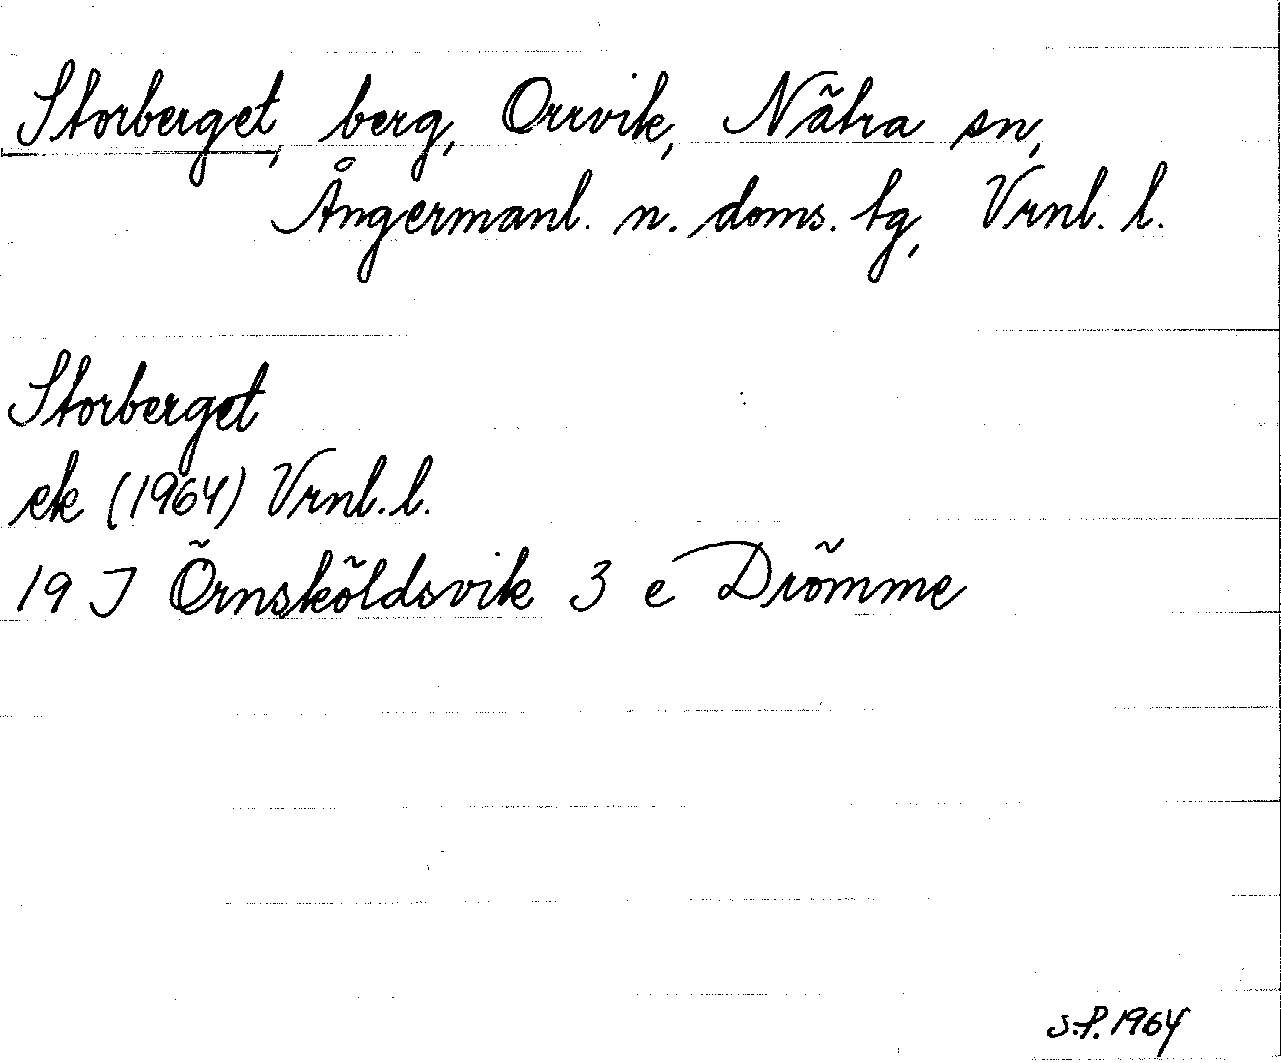 Storberget, berg, Orrvik, Nätra sn,
Ångermanl. n. doms. tg, Vrnl. l.
Storberget
ek (1964) Vrnl. l.
19 J Örnsköldsvik 3 e Drömme
S.P. 1964